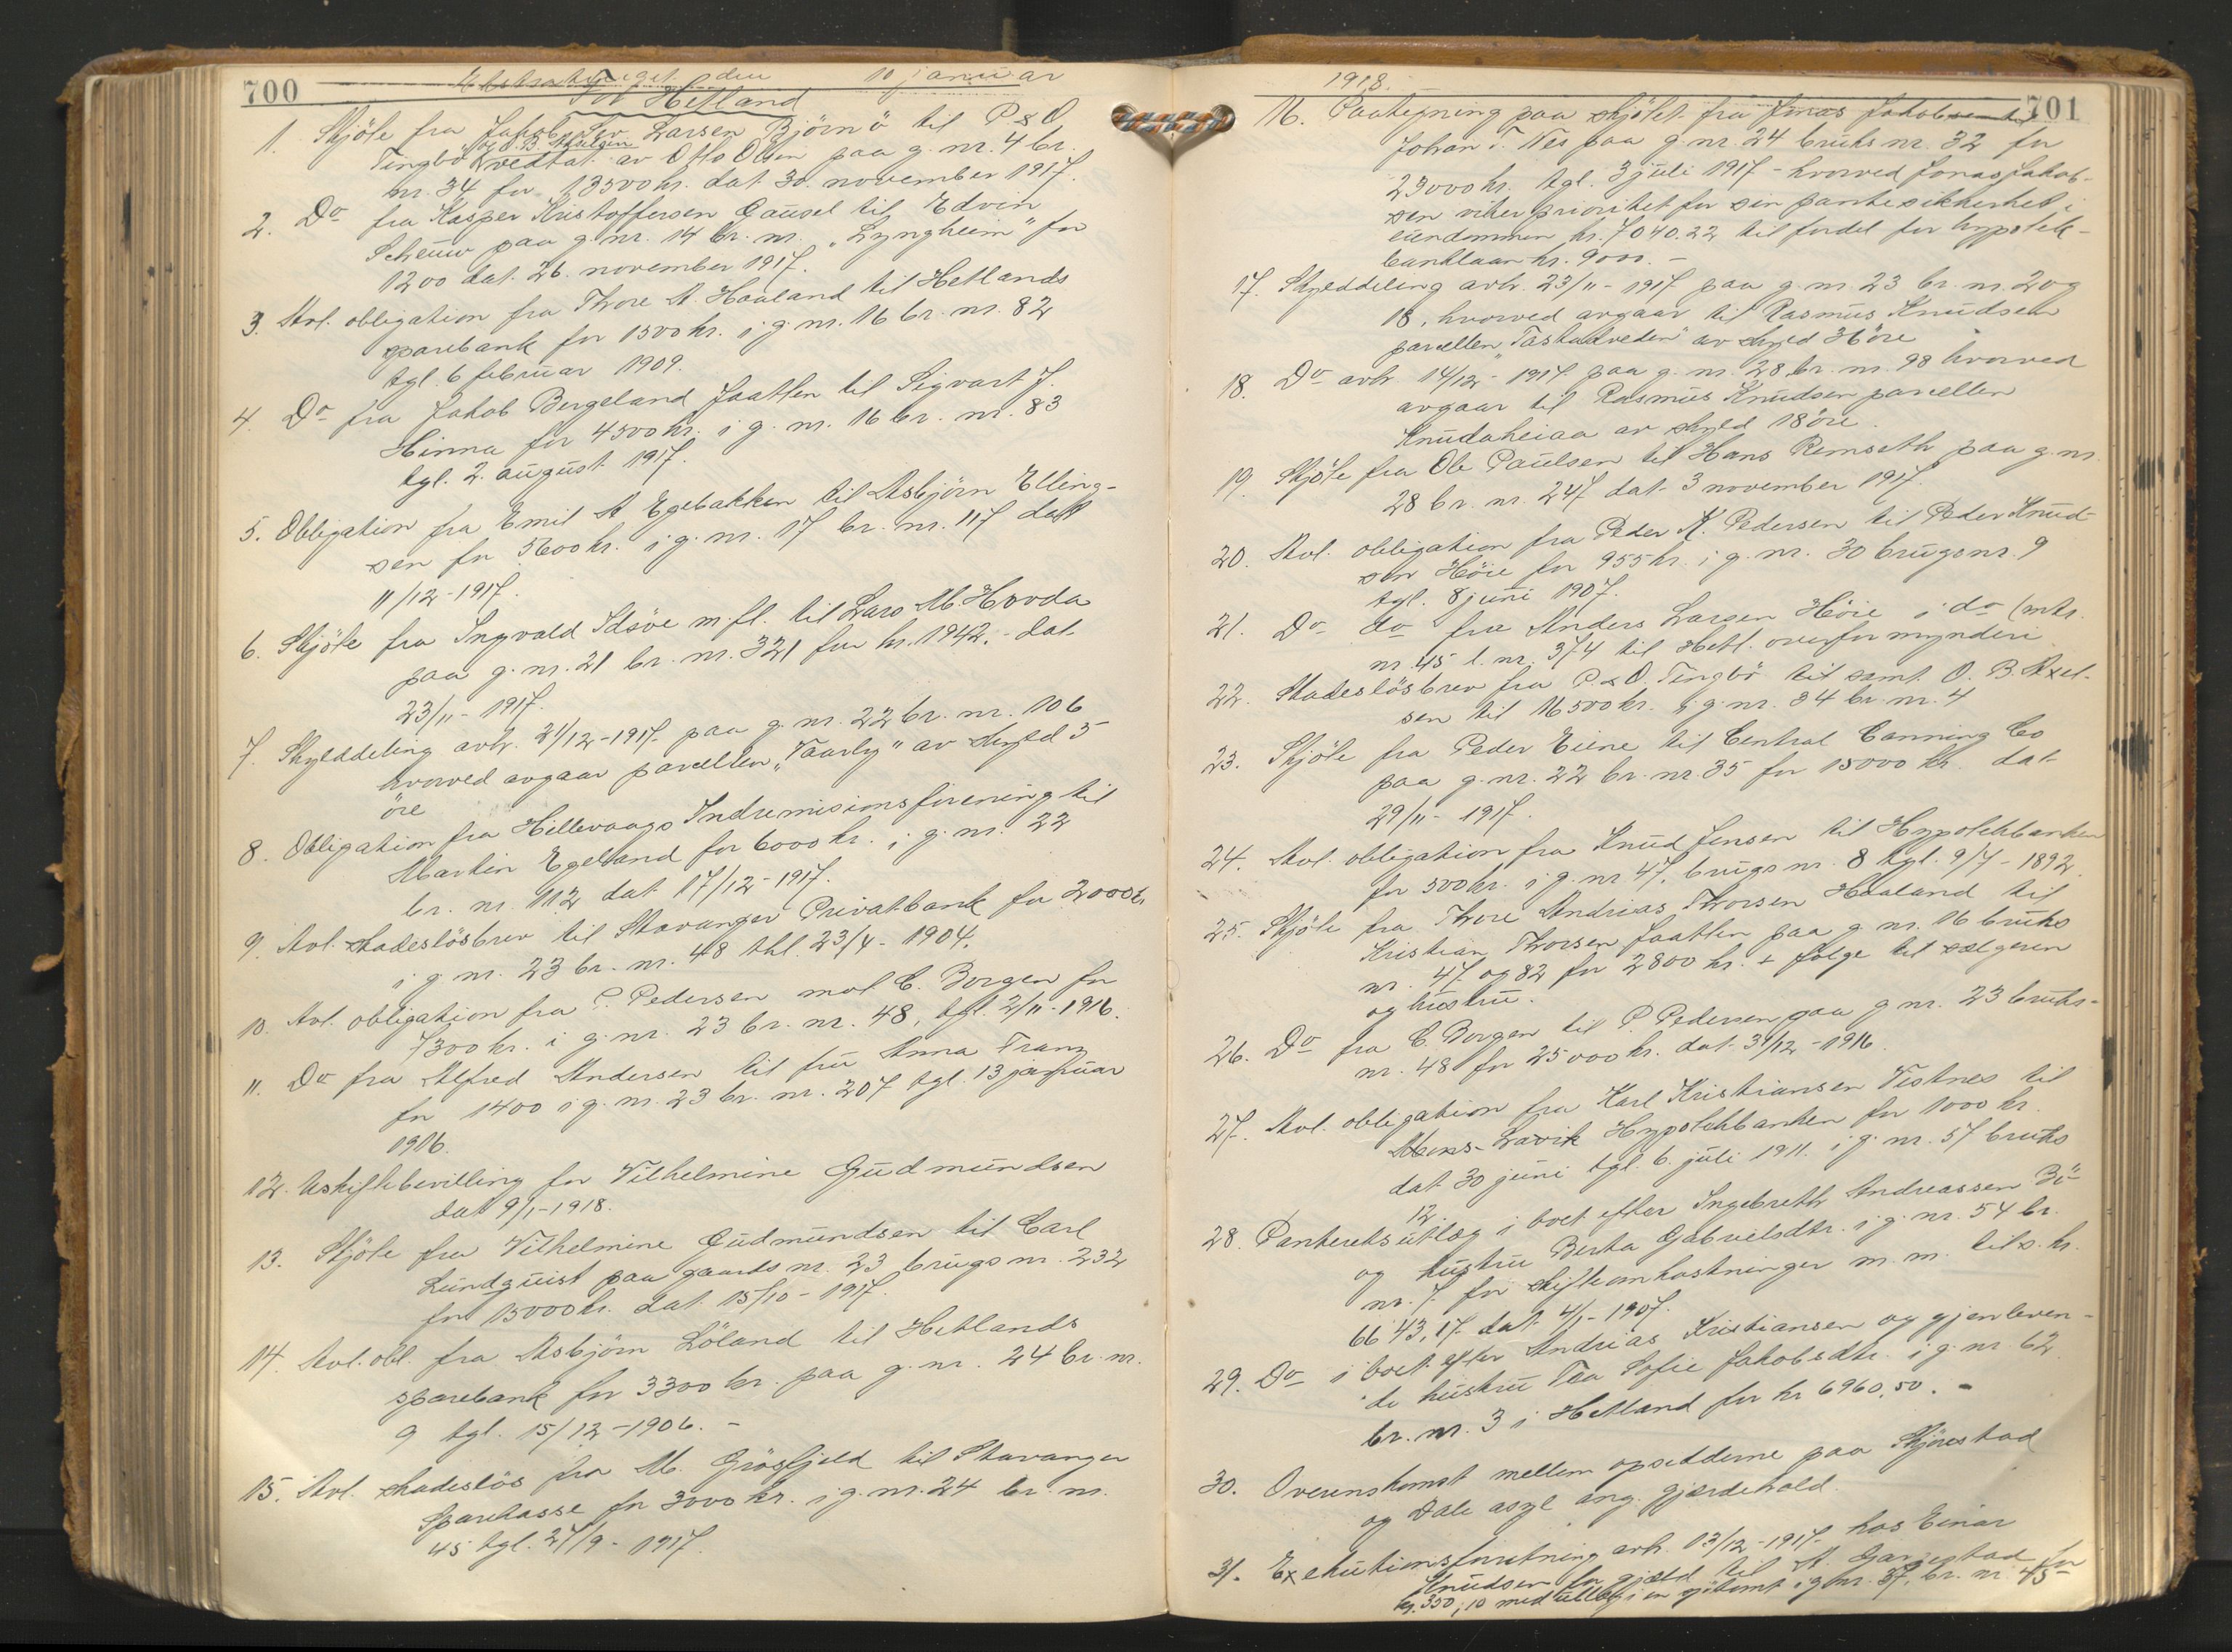 700
den 10 januar
For Hetland
1. Skjöte fra Jakob Sev. Larsen Björnö til P & O.
og O. B. Axelsen
Tingbö vedtat av Otto Olsen paa g. nr. 4 br.
nr. 34 for 13500 kr. dat 30. november 1917.
2. Do fra Kasper Kristoffersen Gausel til Edvin
Scheuw paa g. nr. 14 br. nr. „Lyngheim" for
1200 dat. 26. november 1917.
3. Avl. obligation fra Thore A. Haaland til Hetlands
sparebank for 1500 kr. i g. nr. 16 br. nr. 82
tgl. 6 februar 1909.
4. Do fra Jakob Bergeland Jaatten til Sigvart J.
Hinna for 4500 kr. i g. nr. 16 br. nr. 83
tgl. 2. august 1917.
5. Obligation fra Emil A Egebakken til Asbjörn Elling-
sen for 5600 kr. i g. nr. 17 br. nr. 117 dat
11/12-1917.
6. Skjöte fra Ingvald Idsöe m. fl. til Lars M. Hovda
paa g. nr. 21 br. nr. 321 for kr. 1942.- dat
23/11-1917.
7. Skylddeling avh. 21/12-1917 paa g. nr. 22 br. nr. 106
hvorved avgaar parcellen „Taarly" av skyld 5
öre
8. Obligation fra Hillevaags Indremisionsforening til
Martin Egeland for 6000 kr. i g. nr. 22
br. nr. 112 dat 17/12-1917.
9. Avl. skadeslösbrev til Stavanger Privatbank for 2000 kr.
i g. nr. 23 br. nr. 48 tgl. 23/4-1904.
10. Avl. obligation fra P. Pedersen mot C. Borgen for
7300 kr. i g. nr. 23 br. nr. 48, tgl. 2/11-1916.
11. Do fra Alfred Andersen til fru Anna Tranz
for 1400 i g. nr. 23 br. nr. 207 tgl. 13 januar
1916.
12. Uskiftebevilling for Vilhelmine Gudmundsen
dat 9/1-1918.
13. Skjöte fra Vilhelmine Gudmundsen til Carl
Lundquist paa gaards nr. 23 brugs nr. 232
for 15000 kr. dat 15/10-1917.
14. Avl. obl. fra Asbjörn Löland til Hetlands
sparebank for 3300 kr. paa g. nr. 24 br. nr.
9 tgl. 15/12-1906.-
15. Avl. skadeslös fra M. Grösfjeld til Stavanger
Sparekasse for 3000 kr. i g. nr. 24 br. nr.
45 tgl. 27/9-1917.
1918.
701
16. Paategning paa skjötet fra Jonas Jakobsen til
Johan T. Nes paa g. nr. 24 bruks nr. 32 for
23000 kr. tgl. 3 juli 1917 - hvorved Jonas Jakob-
sen viker prioritet for sin pantesikkerhet i
eiendommen kr. 7040.22 til fordel for hypotek-
banklaan kr. 9000.-
17. Skylddeling avh. 23/11-1917 paa g. nr. 23 br. nr. 2 og
18, hvorved avgaar til Rasmus Knudsen
parcellen „Tastadveden" av skyld 36 öre
18. Do avh. 14/12-1917 paa g. nr. 28 br. nr. 98 hvorved
avgaar til Rasmus Knudsen parcellen
Knudaheiaa av skyld 18 öre.
19. Skjöte fra Ole Paulsen til Hans Remseth paa g. nr.
28 br. nr. 247 dat 3 november 1917.
20. Avl. obligation fra Peder K. Pedersen til Peder Knud-
sen Höie for 955 kr. i g. nr. 30 brugsnr. 9
tgl. 8 juni 1907.
21. Do do fra Anders Larsen Höie i do (mtr.
nr. 45 l. nr. 374 til Hetl. overformynderi
22. Skadeslösbrev fra P. & O. Tingbö til samt O. B. Axel-
sen til 16500 kr. i g. nr. 34 br. nr. 4
23. Skjöte fra Peder Eiene til Central Canning Co
paa g. nr. 22 br. nr. 35 for 15000 kr. dat
29/11-1917.
24. Avl. obligation fra Knud Jensen til Hypotekbanken
for 500 kr. i g. nr. 47, brugs nr. 8 tgl. 9/7-1892.
25. Skjöte fra Thore Andrias Thorsen Haaland til
Kristian Thorsen Jaatten paa g. nr. 16 bruks
nr. 47 og 82 for 2800 kr. + følge til sælgeren
og hustru.
26. Do fra C. Borgen til P. Pedersen paa g. nr. 23 bruks-
nr. 48 for 25000 kr. dat 31/12-1916.
27. Avl. obligation fra Karl Kristiansen Vestnes til
Hypotekbanken for 1000 kr.
dat 30 juni tgl. 6. juli 1911. i g. nr. 57 bruks
12.
28. Panteretsutlæg i boet efter Ingebreth Andreassen Bö
og hustru Berta Gabrielsdtr. i g. nr. 54 br.
nr. 7. for skifteomkostninger m. m. tils. kr.
6643,17 dat 4/1-1907.
29. Do i boet efter Andrias Kristiansen og gjenleven-
de hustru Tea Sofie Jakobsdtr. i g. nr. 62
br. nr. 3 i Hetland for kr 6960,50.-
30. Overenskomst mellem opsidderne paa Skjörestad
og Dale asyl ang. gjærdehold.
31. Exekutionsforretning avh. 13/12-1917 hos Einar
Knudsen for gjæld til A. Gargestad for
kr. 350,10 med utlæg i en i g. nr. 37, br. nr. 45